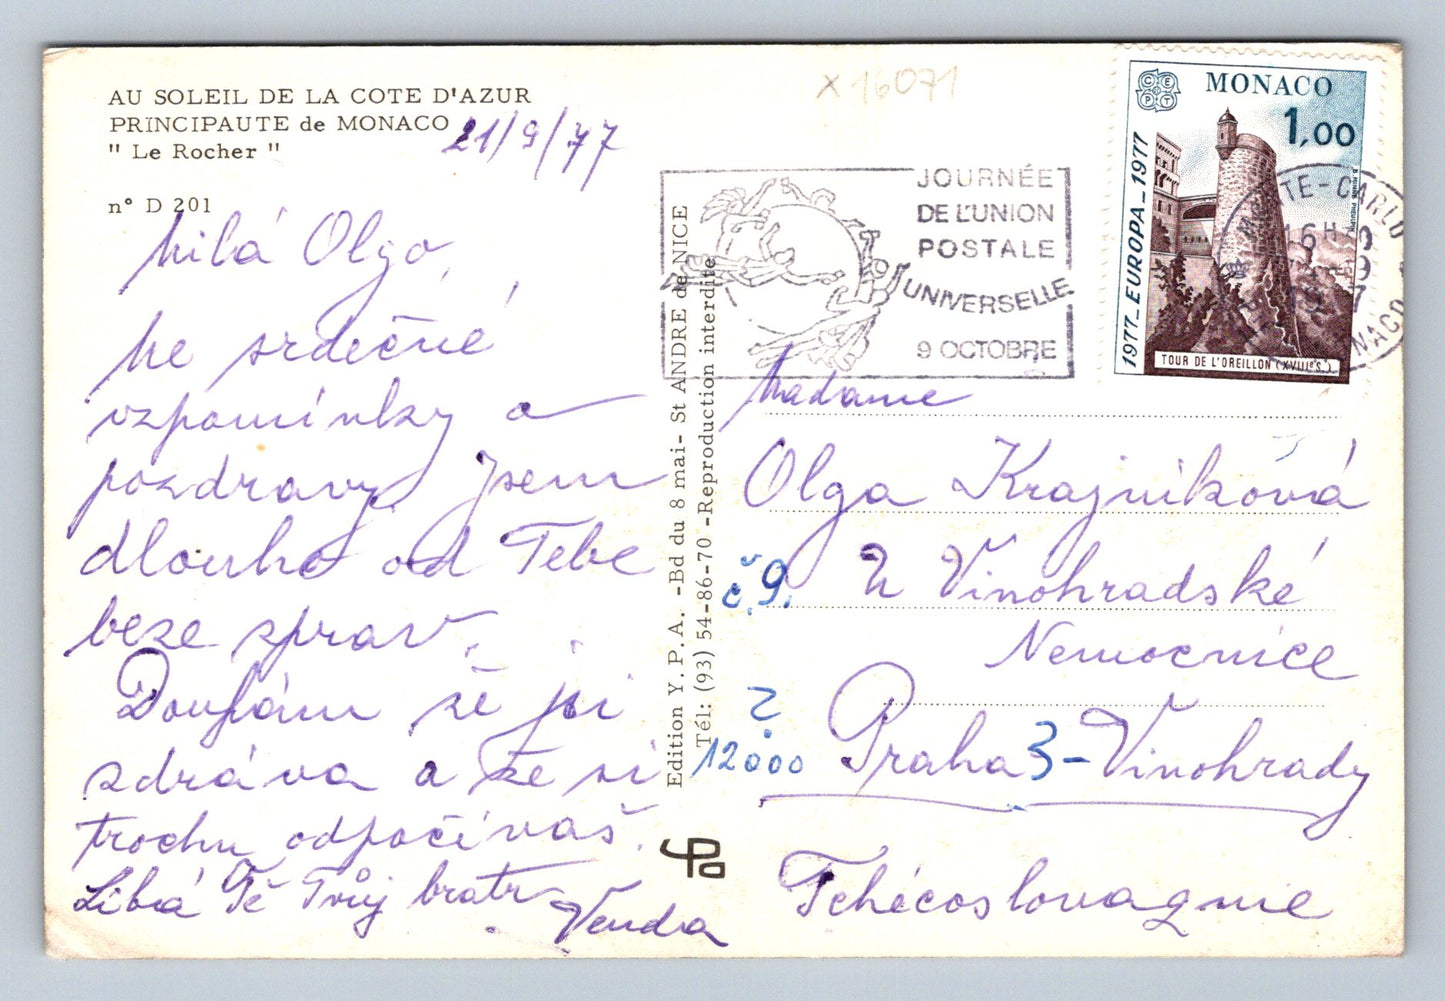 AU SOLEIL DE LA COTE D'AZUR
PRINCIPAUTE de MONACO
" Le Rocher "
n° D 201
21/9/77
Milá Olgo,
ke srdečné
vzpomínky a
pozdravy. Jsem
dlouho od Tebe
beze zprav.
Doufám že jsi
zdráva a že si
trochu odpočíváš.
Líbá Tě Tvůj bratr
Venda
Edition Y.P.A. -Bd du 8 mai- St ANDRE de NICE
Tél: (93) 54-86-70 -Reproduction interdite
x 16071
JOURNÉE
DE L'UNION
POSTALE
UNIVERSELLE
9 OCTOBRE
CEPT
MONACO
1,00
1977_EUROPA_1977
TOUR DE L'OREILLON (XVIIIe S.)
MONTE-CARLO
16H
MONACO
Madame
Olga Krajníková
č.9. U Vinohradské
Nemocnice
?
12000 Praha 3-Vinohrady
Tchécoslovaquie